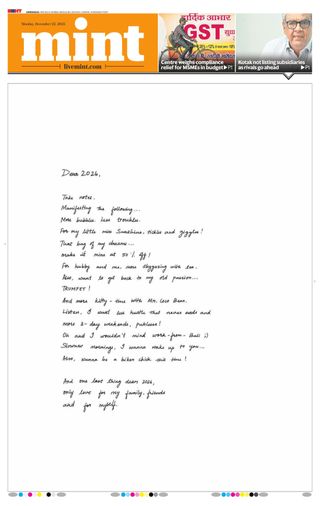 Monday, December 22, 2025
mint
livemint.com
हार्दिक आभार
GST
Centre weighs compliance
relief for MSMEs in budget ▶P1
Kotak not listing subsidiaries
as rivals go ahead ▶P1
Dear 2026,
Take notes.
Manifesting the following...
More bubble. Less trouble.
For my little miss Sunshine, tickles and giggles!
That bag of my dreams...
make it mine at 50% off!
For hubby and me, more staycations with tea.
Also, want to get back to my old passion...
TRUMPET!
And more kitty-time with Mr. Coco Bean.
Listen, I want less hustle that never ends and
more 3-day weekends, puhleese!
Oh and I wouldn't mind work-from-Bali ;)
Slower mornings, I wanna wake up to you...
Also, wanna be a biker chick this time!
And one last thing dear 2026,
only love for my family, friends
and for myself.